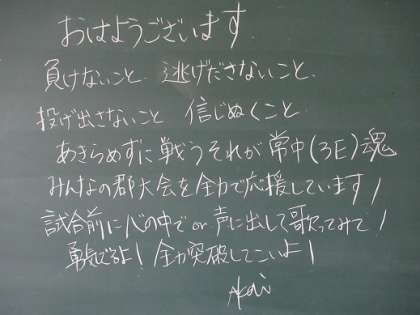 おはようございます.
負けないこと. 逃げださないこと.
投げ出さないこと 信じぬくこと
あきらめずに戦うそれが常中(3E)魂
みんなの郡大会を全力で応援しています!
試合前に心の中で or 声に出して歌ってみて!
勇気でるよ! 全力突破してこいよ!
Akai